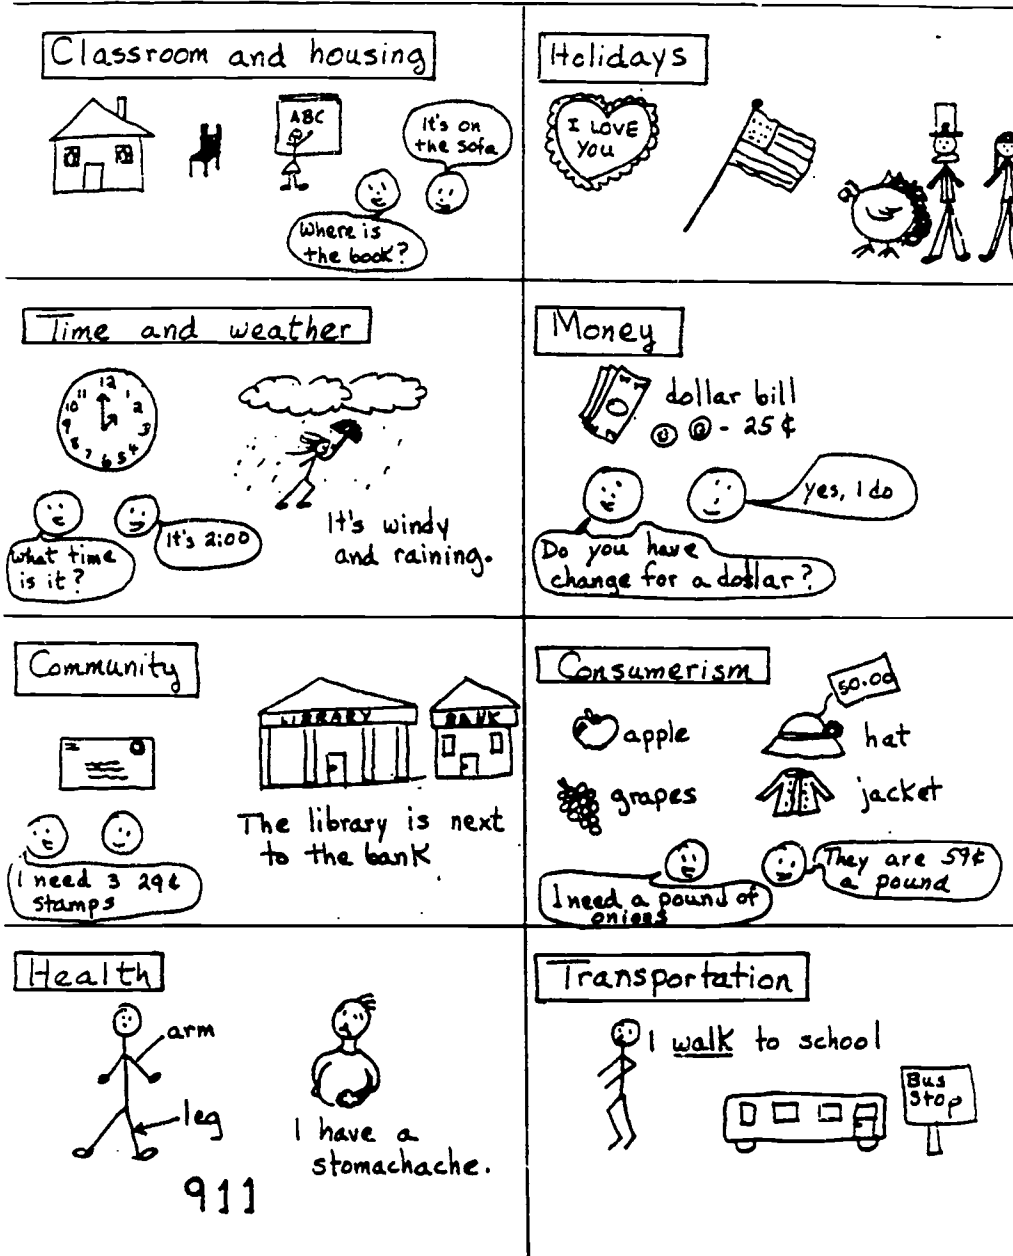 Classroom and housing
ABC
It's on
the sofa
Where is
the book?
Holidays
I LOVE
YOU
Time and weather
12
11
1
10
2
9
3
8
4
7
6
5
What time
is it?
It's 2:00
It's windy
and raining.
Money
dollar bill
- 25¢
yes, I do
Do you have
change for a dollar?
Community
LIBRARY
BANK
The library is next
to the bank
I need 3 29¢
stamps
Consumerism
50.00
apple
hat
grapes
jacket
They are 59¢
a pound
I need a pound of
Health
arm
leg
911
I have a
stomachache.
Transportation
I walk to school
Bus
Stop